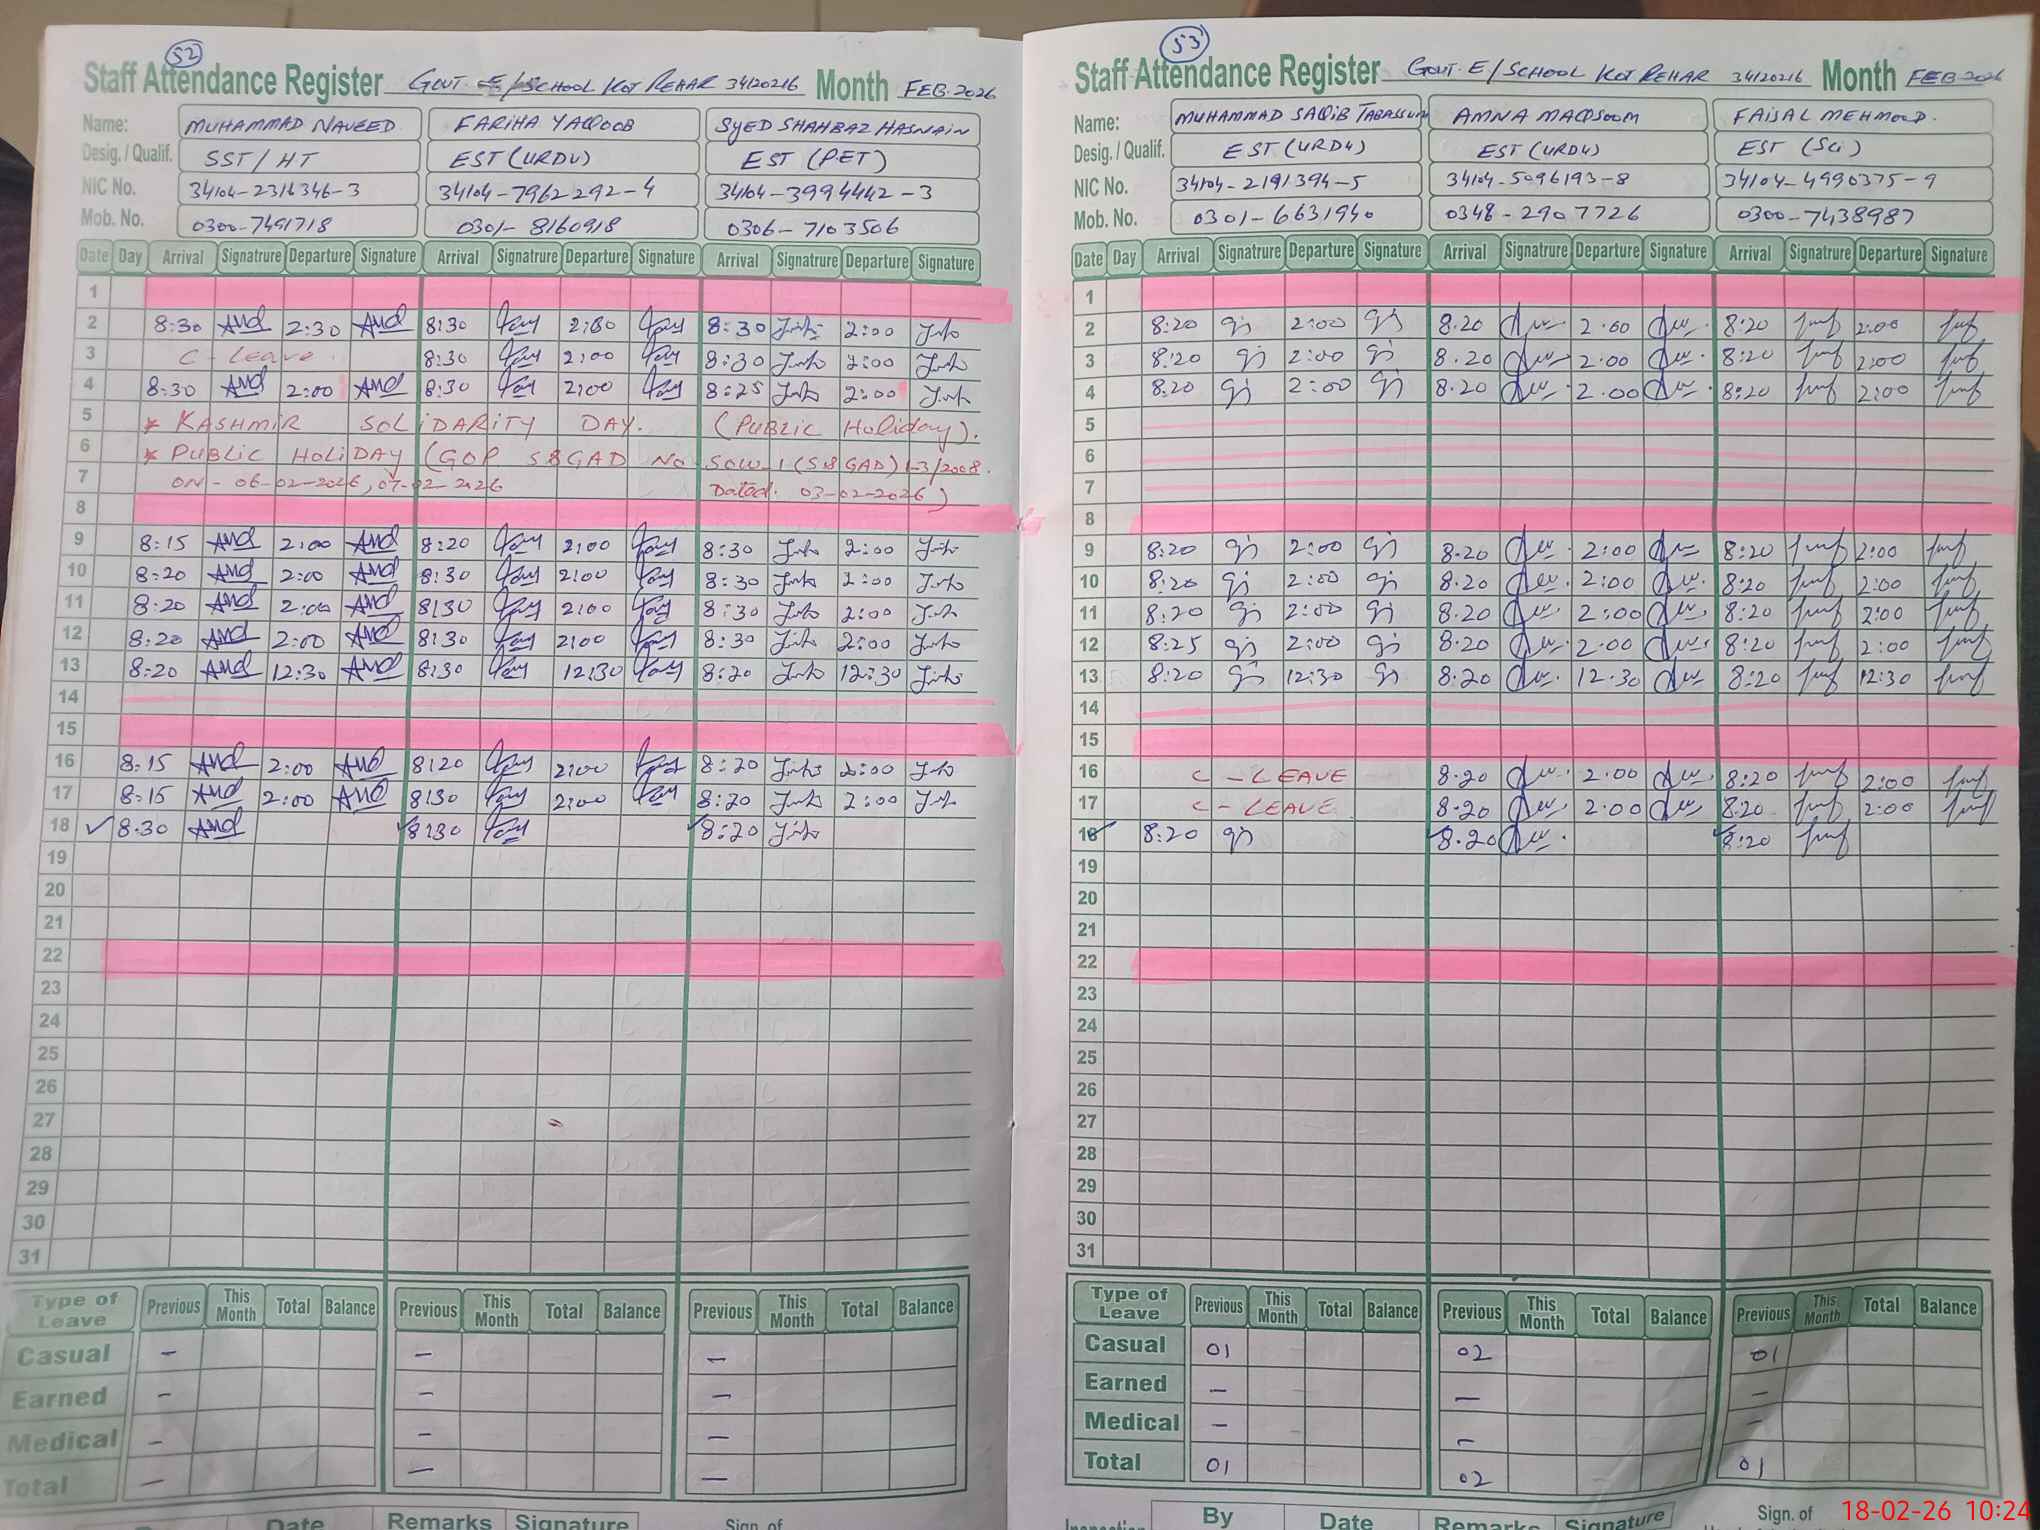 52
Staff Attendance Register GOVT. E/SCHOOL KOT REHAR 34120216 Month FEB. 2026
Name: MUHAMMAD NAVEED FARIHA YAQOOB SYED SHAHBAZ HASNAIN
Desig. / Qualif. SST/HT EST (URDU) EST (PET)
NIC No. 34104-2316346-3 34104-7962292-4 34104-3994442-3
Mob. No. 0300-7491718 0301-8160918 0306-7103506
Date Day Arrival Signatrure Departure Signature Arrival Signatrure Departure Signature Arrival Signatrure Departure Signature
1
2 8:30 2:30 8:30 2:00 8:30 2:00
3 C-Leave 8:30 2:00 8:30 2:00
4 8:30 2:00 8:30 2:00 8:25 2:00
5 * KASHMIR SOLIDARITY DAY. (PUBLIC Holiday).
6 * PUBLIC HOLIDAY (GOP S&GAD No SOW-1 (S&GAD) 1-3/2008.
7 ON - 06-02-2026, 07-02-2026 Dated. 03-02-2026)
8
9 8:15 2:00 8:20 2:00 8:30 2:00
10 8:20 2:00 8:30 2:00 8:30 2:00
11 8:20 2:00 8:30 2:00 8:30 2:00
12 8:20 2:00 8:30 2:00 8:30 2:00
13 8:20 12:30 8:30 12:30 8:20 12:30
14
15
16 8:15 2:00 8:20 2:00 8:20 2:00
17 8:15 2:00 8:30 2:00 8:20 2:00
18 8:30 8:30 8:20
19
20
21
22
23
24
25
26
27
28
29
30
31
Type of Leave Previous This Month Total Balance Previous This Month Total Balance Previous This Month Total Balance
Casual - - -
Earned - - -
Medical - - -
Total - - -
Date Remarks Signature Sign. of
53
Staff Attendance Register GOVT. E/SCHOOL KOT REHAR 34120216 Month FEB 2026
Name: MUHAMMAD SAQIB TABASSUM AMNA MAQSOOM FAISAL MEHMOOD.
Desig. / Qualif. EST (URDU) EST (URDU) EST (Sci)
NIC No. 34104-2191394-5 34104-5096193-8 34104-4990375-9
Mob. No. 0301-6631940 0348-2907726 0300-7438987
Date Day Arrival Signatrure Departure Signature Arrival Signatrure Departure Signature Arrival Signatrure Departure Signature
1
2 8:20 2:00 8.20 2.00 8:20 2:00
3 8:20 2:00 8.20 2.00 8:20 2:00
4 8:20 2:00 8.20 2.00 8:20 2:00
5
6
7
8
9 8:20 2:00 8.20 2:00 8:20 2:00
10 8:20 2:00 8.20 2:00 8:20 2:00
11 8:20 2:00 8.20 2:00 8:20 2:00
12 8:25 2:00 8.20 2.00 8:20 2:00
13 8:20 12:30 8.20 12.30 8:20 12:30
14
15
16 C-LEAVE 8.20 2.00 8:20 2:00
17 C-LEAVE 8.20 2.00 8:20 2:00
18 8:20 8.20 8:20
19
20
21
22
23
24
25
26
27
28
29
30
31
Type of Leave Previous This Month Total Balance Previous This Month Total Balance Previous This Month Total Balance
Casual 01 02 01
Earned - - -
Medical - - -
Total 01 02 01
By Date Remarks Signature Sign. of
18-02-26 10:24